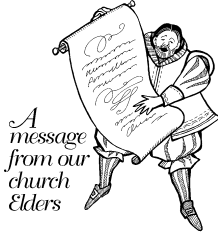 A
message
from our
church
Elders